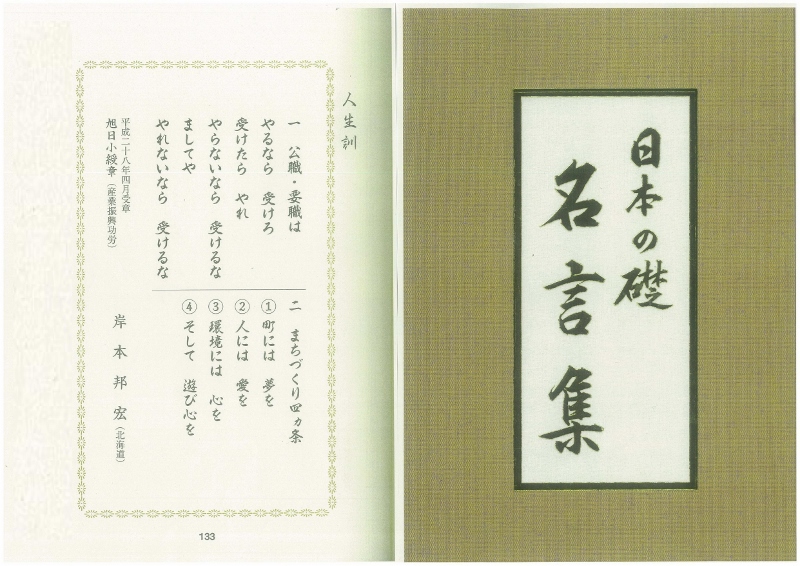 日本の礎
名言集
人生訓
一 公職・要職は
やるなら 受けろ
受けたら やれ
やらないなら 受けるな
ましてや
やれないなら 受けるな
二 まちづくり四ヵ条
① 町には 夢を
② 人には 愛を
③ 環境には 心を
④ そして 遊び心を
平成二十八年四月受章
旭日小綬章（産業振興功労）
岸本邦宏（北海道）
133